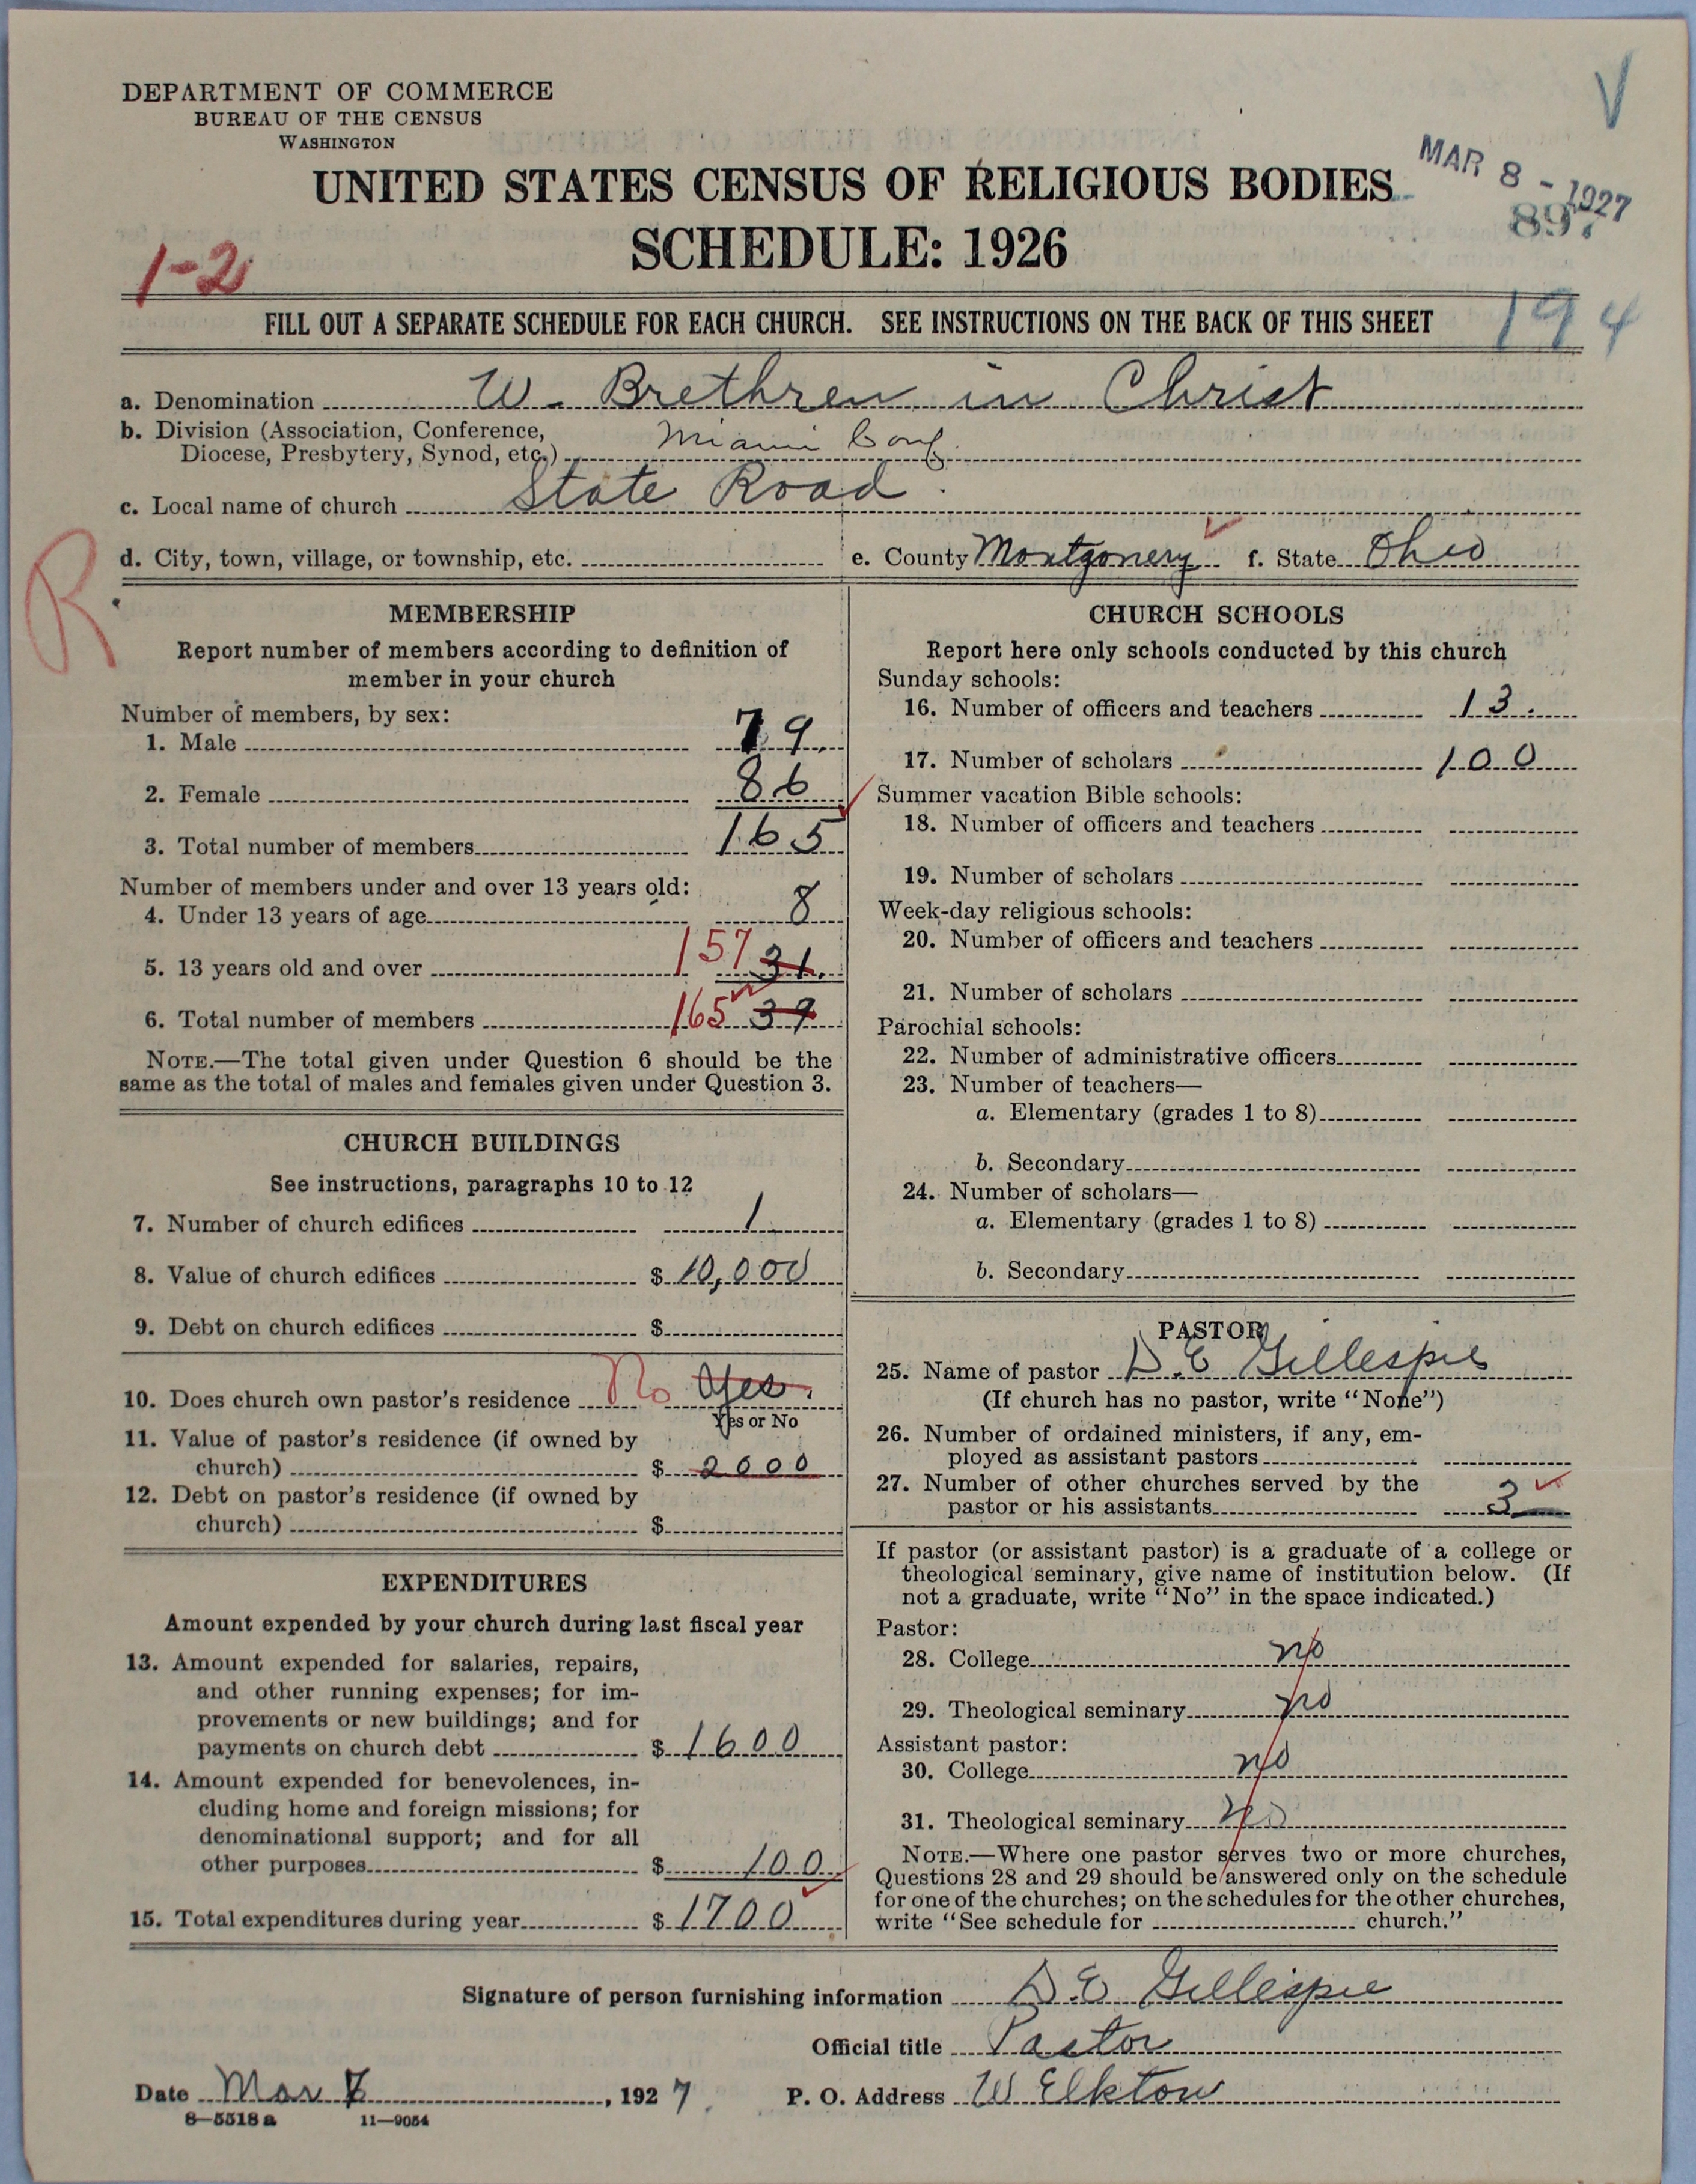 DEPARTMENT OF COMMERCE
BUREAU OF THE CENSUS
WASHINGTON
V
UNITED STATES CENSUS OF RELIGIOUS BODIES
MAR 8 - 1927
897
1-2
SCHEDULE: 1926
FILL OUT A SEPARATE SCHEDULE FOR EACH CHURCH. SEE INSTRUCTIONS ON THE BACK OF THIS SHEET
194
a. Denomination W. Brethren in Christ
b. Division (Association, Conference,
Diocese, Presbytery, Synod, etc.) Miami Conf.
c. Local name of church State Road.
R
d. City, town, village, or township, etc. e. County Montgomery f. State Ohio
MEMBERSHIP
Report number of members according to definition of
member in your church
Number of members, by sex:
1. Male 79
2. Female 86
3. Total number of members 165
Number of members under and over 13 years old:
4. Under 13 years of age 8
5. 13 years old and over 157 31.
6. Total number of members 165 39
NOTE.—The total given under Question 6 should be the
same as the total of males and females given under Question 3.
CHURCH BUILDINGS
See instructions, paragraphs 10 to 12
7. Number of church edifices 1
8. Value of church edifices $ 10,000
9. Debt on church edifices $
10. Does church own pastor's residence No Yes.
Yes or No
11. Value of pastor's residence (if owned by
church) $ 2000
12. Debt on pastor's residence (if owned by
church) $
EXPENDITURES
Amount expended by your church during last fiscal year
13. Amount expended for salaries, repairs,
and other running expenses; for im-
provements or new buildings; and for
payments on church debt $ 1600
14. Amount expended for benevolences, in-
cluding home and foreign missions; for
denominational support; and for all
other purposes $ 100
15. Total expenditures during year $ 1700
CHURCH SCHOOLS
Report here only schools conducted by this church
Sunday schools:
16. Number of officers and teachers 13.
17. Number of scholars 100
Summer vacation Bible schools:
18. Number of officers and teachers
19. Number of scholars
Week-day religious schools:
20. Number of officers and teachers
21. Number of scholars
Parochial schools:
22. Number of administrative officers
23. Number of teachers—
a. Elementary (grades 1 to 8)
b. Secondary
24. Number of scholars—
a. Elementary (grades 1 to 8)
b. Secondary
PASTOR
25. Name of pastor D. E Gillespie
(If church has no pastor, write "None")
26. Number of ordained ministers, if any, em-
ployed as assistant pastors
27. Number of other churches served by the
pastor or his assistants 3
If pastor (or assistant pastor) is a graduate of a college or
theological seminary, give name of institution below. (If
not a graduate, write "No" in the space indicated.)
Pastor:
28. College no
29. Theological seminary no
Assistant pastor:
30. College no
31. Theological seminary no
NOTE.—Where one pastor serves two or more churches,
Questions 28 and 29 should be answered only on the schedule
for one of the churches; on the schedules for the other churches,
write "See schedule for church."
Signature of person furnishing information D. E Gillespie
Official title Pastor
Date Mar 7, 1927. P. O. Address W Elkton
8—5518 a 11—9054